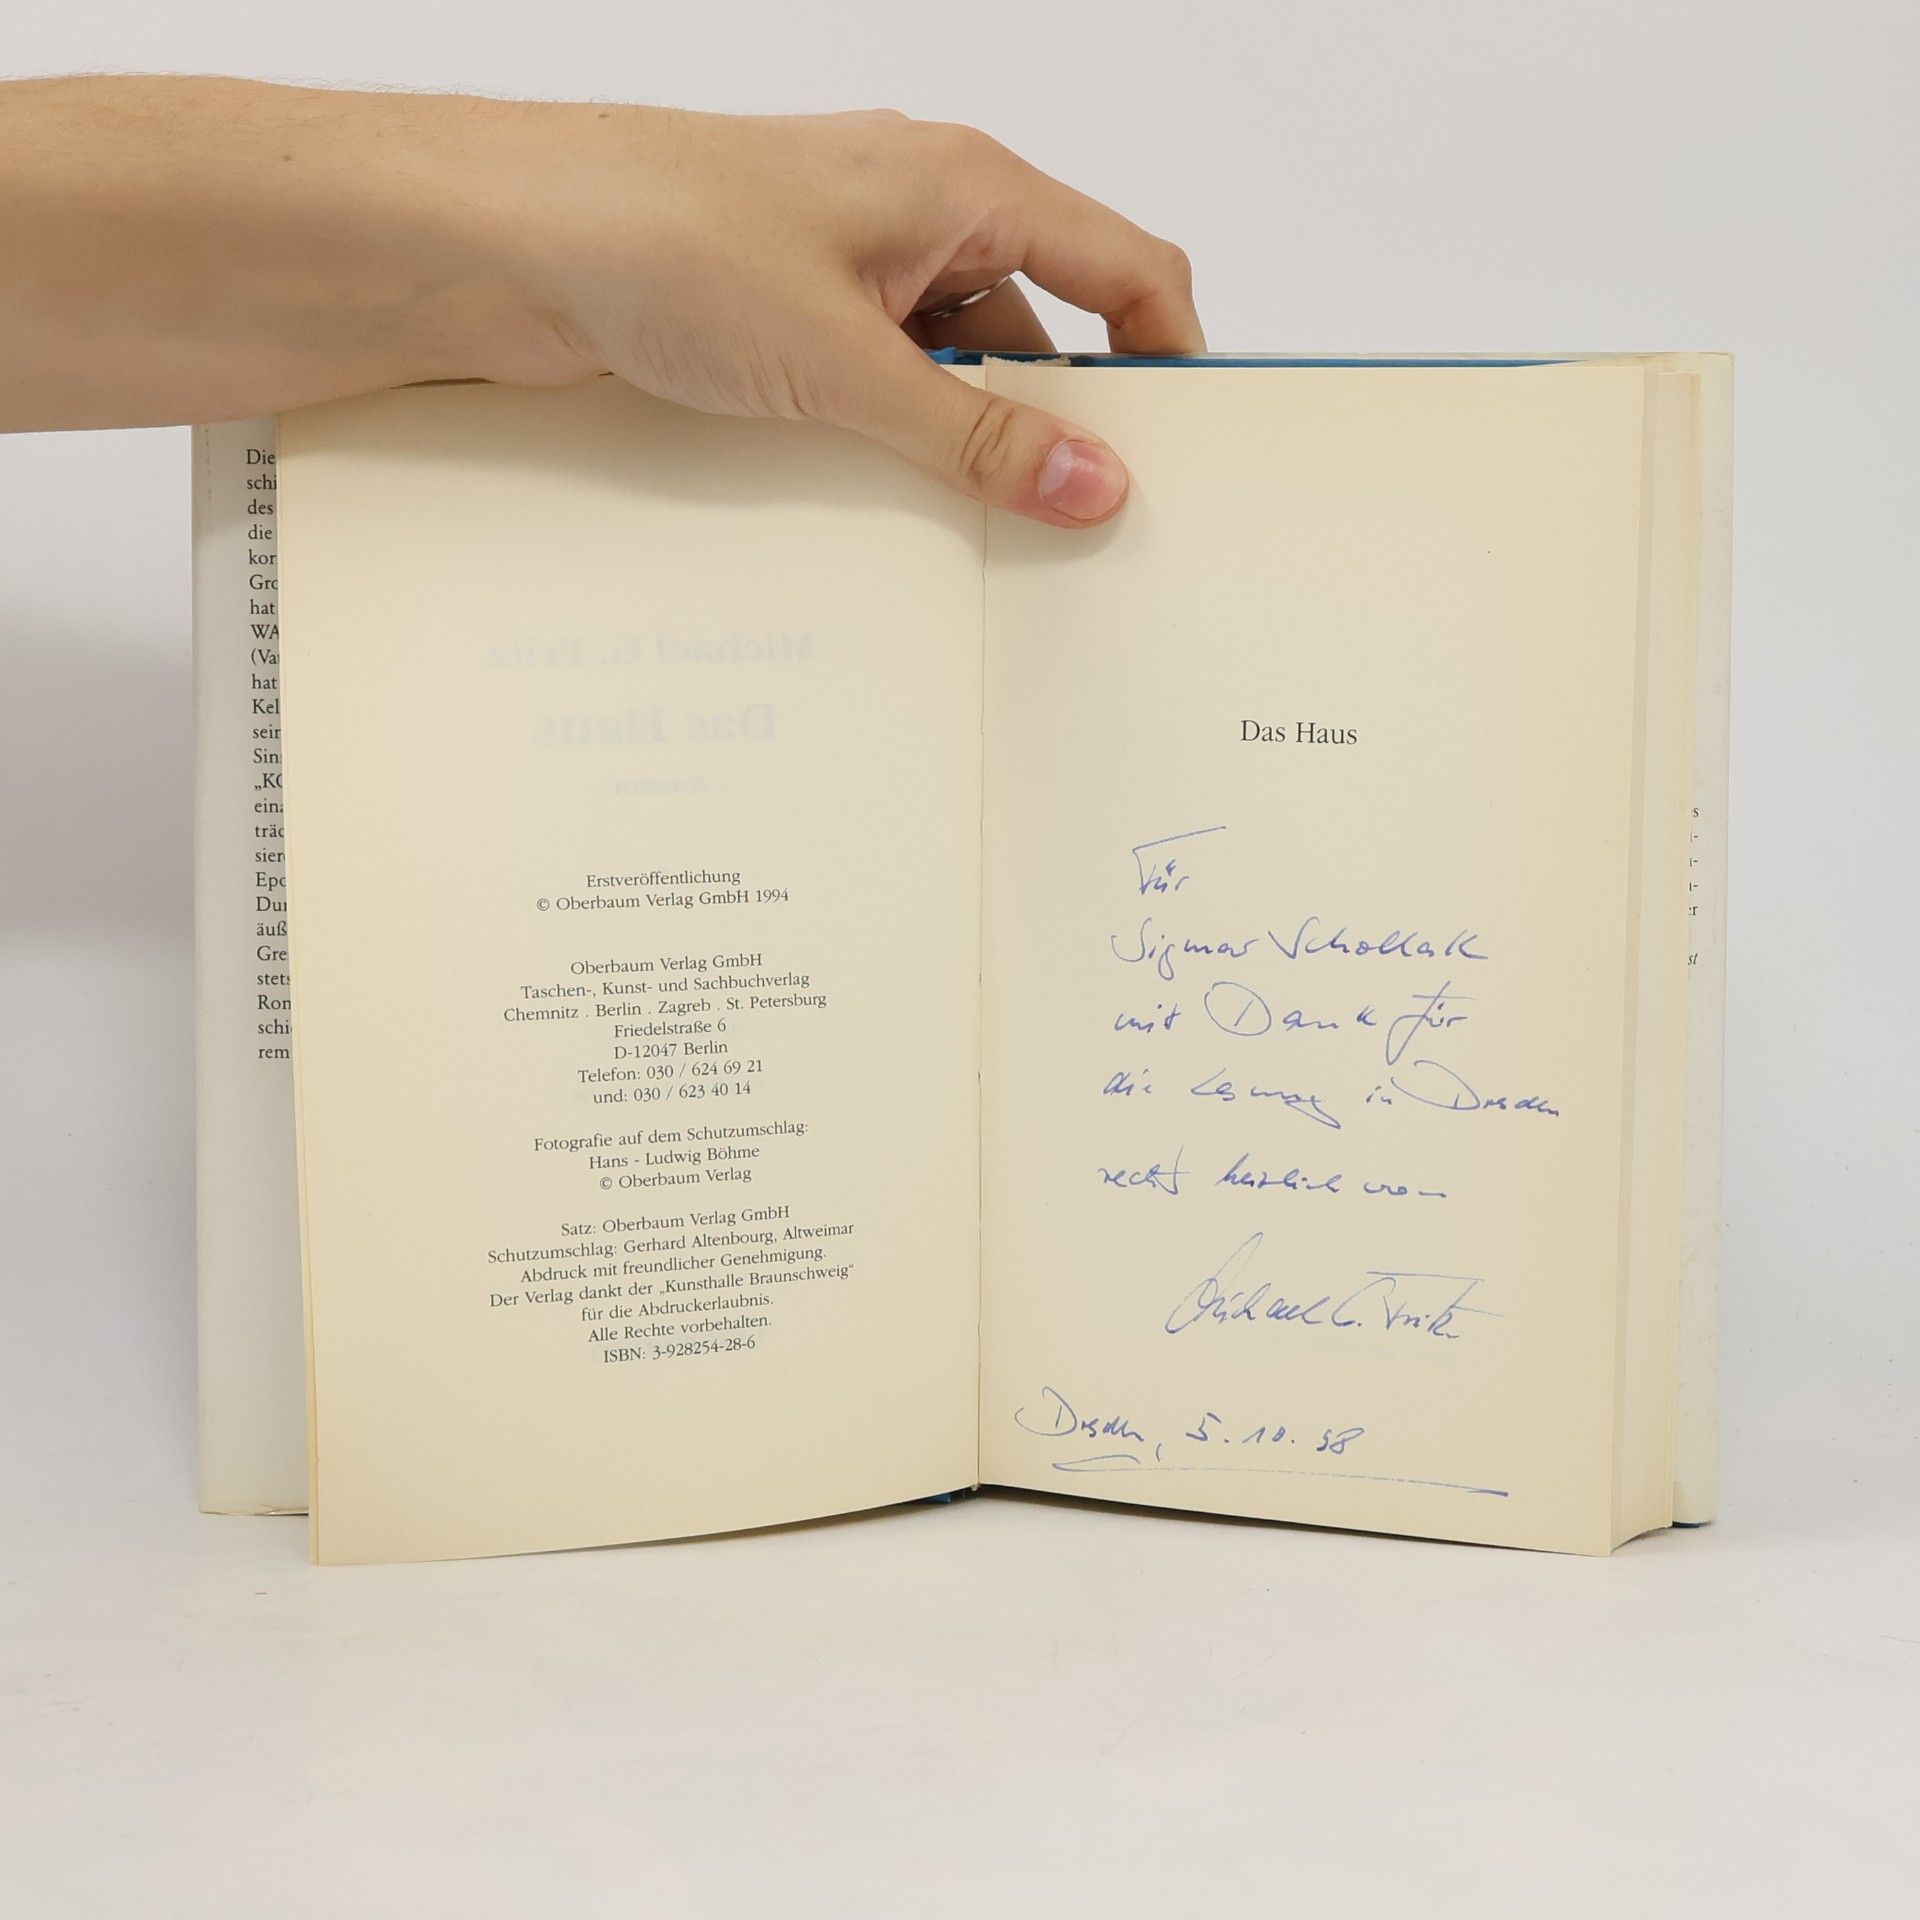 Die
schi
des
die
kor
Gro
hat
WA
(Va
hat
Kel
sein
Sin
„KO
eina
träc
sier
Epo
Dur
äuß
Gre
stets
Ron
schi
rem
Michael G. Fritz
Das Haus
- Roman -
Erstveröffentlichung
© Oberbaum Verlag GmbH 1994
Oberbaum Verlag GmbH
Taschen-, Kunst- und Sachbuchverlag
Chemnitz . Berlin . Zagreb . St. Petersburg
Friedelstraße 6
D-12047 Berlin
Telefon: 030 / 624 69 21
und: 030 / 623 40 14
Fotografie auf dem Schutzumschlag:
Hans - Ludwig Böhme
© Oberbaum Verlag
Satz: Oberbaum Verlag GmbH
Schutzumschlag: Gerhard Altenbourg, Altweimar
Abdruck mit freundlicher Genehmigung.
Der Verlag dankt der „Kunsthalle Braunschweig"
für die Abdruckerlaubnis.
Alle Rechte vorbehalten.
ISBN: 3-928254-28-6
Das Haus
Für
Sigmar Schollak
mit Dank für
die Lesung in Dresden
recht herzlich von
Michael G. Fritz
Dresden, 5.10.98